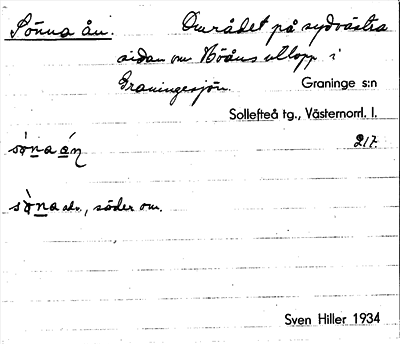 Sönna ån. Området på sydvästra
sidan om Höåns utlopp i
Graningesjön. Graninge s:n
Sollefteå tg., Västernorrl. l.
217.
sò̀na ǻn
sò̀na adv., söder om.
Sven Hiller 1934